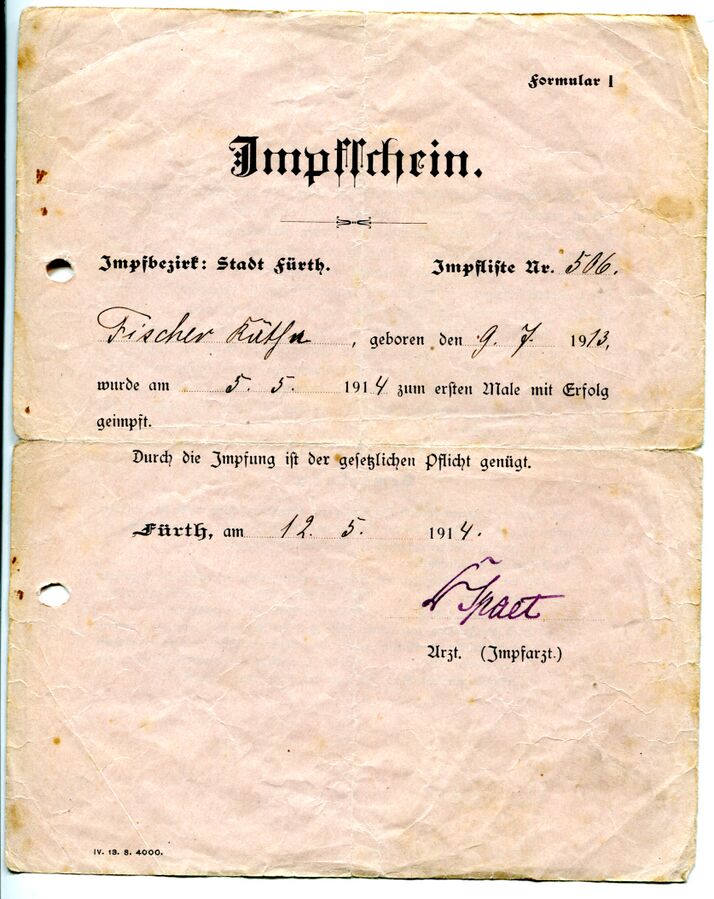 Formular I
Impfschein.
Impfbezirk: Stadt Fürth. Impfliste Nr. 506.
Fischer Käthe, geboren den 9. 7 1913,
wurde am 5. 5. 1914 zum ersten Male mit Erfolg
geimpft.
Durch die Impfung ist der gesetzlichen Pflicht genügt.
Fürth, am 12. 5. 1914.
Dr Spaet
Arzt. (Impfarzt.)
IV. 13. S. 4000.